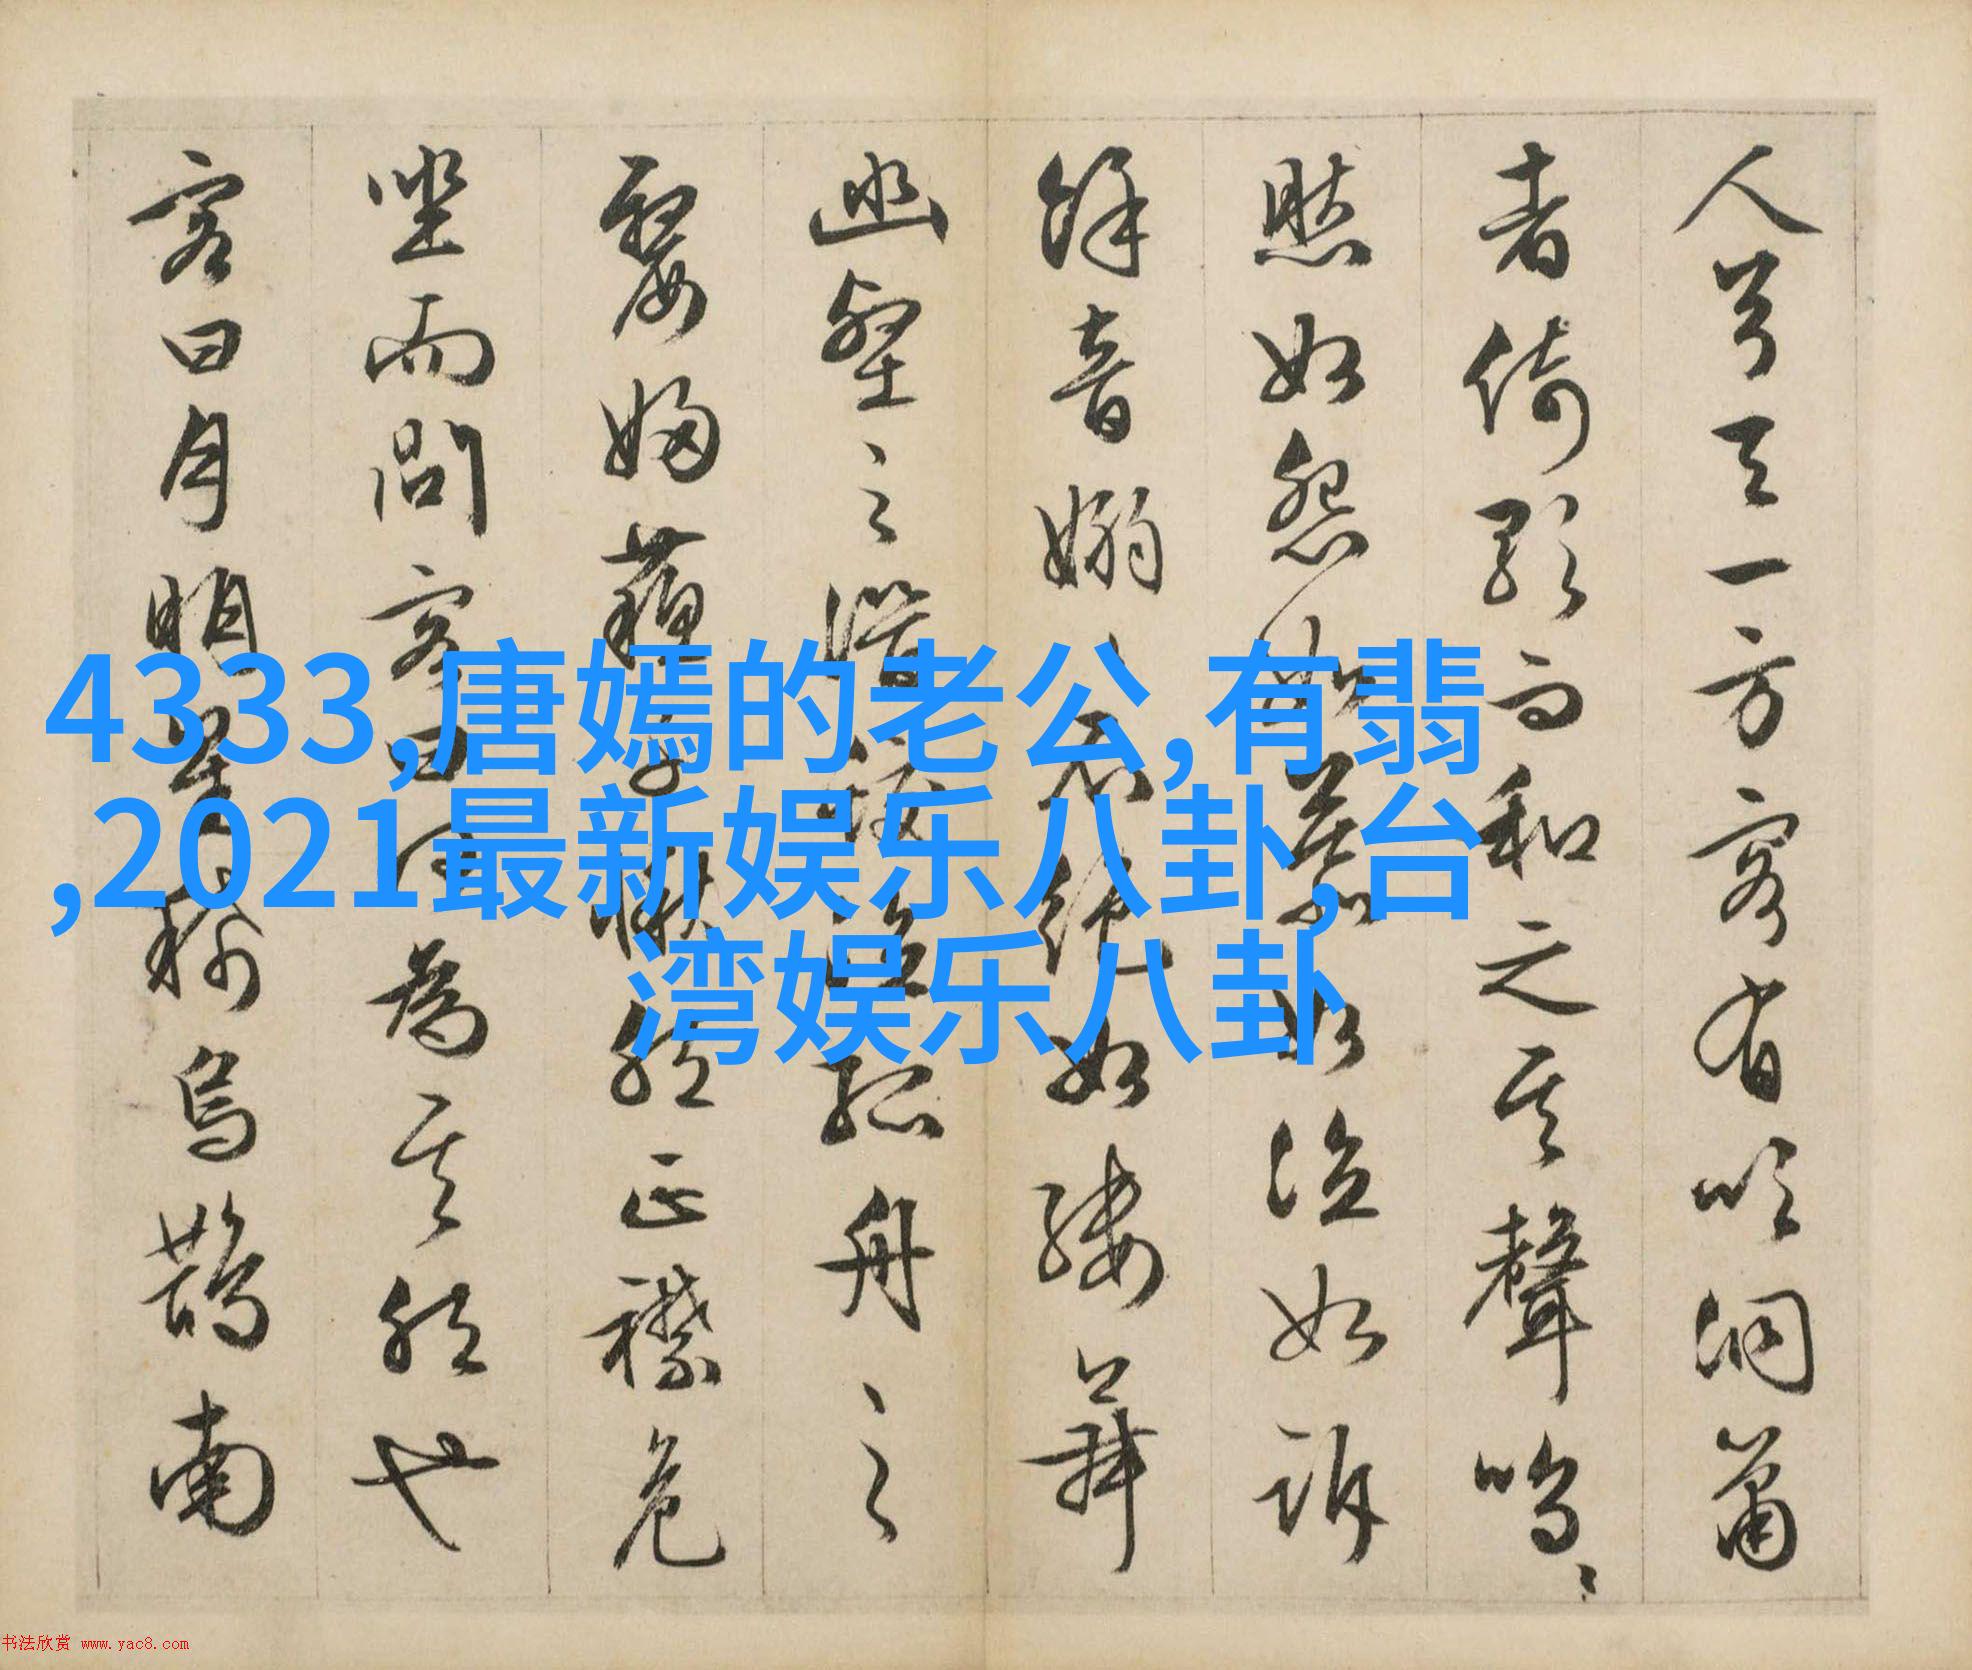 人兮天一方客有吹洞簫
者倚歌而和之其聲嗚〻
然如怨如慕如泣如訴
餘音嫋〻不絕如縷舞
幽壑之潛蛟泣孤舟之
嫠婦蘇子愀然正襟危
坐而問客曰何為其然也
客曰月明星稀烏鵲南
4333,唐嫣的老公,有翡
,2021最新娱乐八卦,台
湾娱乐八卦
书法欣赏 www.yac8.com